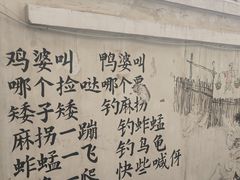 鸡婆叫 鸭婆叫
哪个捡哒 哪个
矮子矮 钓麻拐
麻拐一蹦 钓蚱蜢
蚱蜢一飞 钓乌龟
快些喊伢